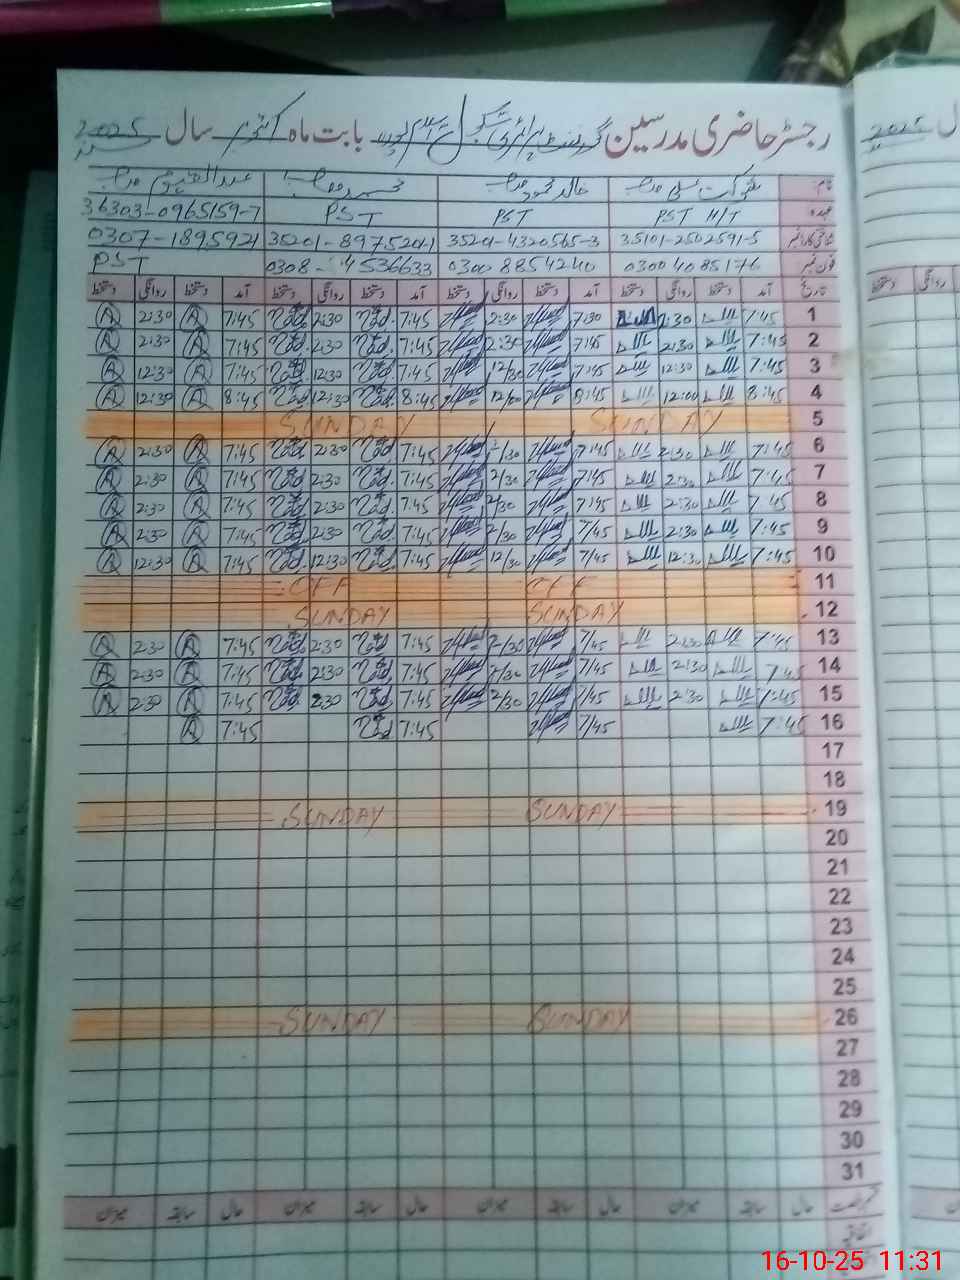 رجسٹر حاضری مدرسین گورنمنٹ پرائمری سکول بابت ماہ اکتوبر سال 2025
نام: شوکت علی صاحب خالد محمود صاحب محمد صاحب عبدالقیوم صاحب
عہدہ PST H/T PST PST 36303-0965159-7
شناختی کارڈ نمبر 35101-2502591-5 35201-4320565-3 35201-8975201-1 0307-1895921
فون نمبر 0300 4085176 0300 8854240 0308-4536633 PST
تاریخ آمد دستخط روانگی دستخط آمد دستخط روانگی دستخط آمد دستخط روانگی دستخط آمد دستخط روانگی دستخط
1 7:45 2:30 7:30 2:30 7:45 2:30 7:45 A 2:30 A
2 7:45 2:30 7:45 2:30 7:45 2:30 7:45 A 2:30 A
3 7:45 12:30 7:45 12/30 7:45 12:30 7:45 A 12:30 A
4 8:45 12:00 8:45 8:45 12:30 8:45 A 12:30 A
5 SUNDAY SUNDAY
6 7:45 2:30 7:45 7:45 2:30 7:45 A 2:30 A
7 7:45 2:30 7:45 2/30 7:45 2:30 7:45 A 2:30 A
8 7:45 2:30 7:45 2/30 7:45 2:30 7:45 A 2:30 A
9 7:45 2:30 7/45 2/30 7:45 2:30 7:45 A 2:30 A
10 7:45 12:30 7/45 12/30 7:45 12:30 7:45 A 12:30 A
11 OFF OFF
12 SUNDAY SUNDAY
13 7:45 2:30 7/45 2/30 7:45 2:30 7:45 A 2:30 A
14 7:45 2:30 7/45 2/30 7:45 2:30 7:45 A 2:30 A
15 7:45 2:30 7/45 2/30 7:45 2:30 7:45 A 2:30 A
16 7:45 7/45 7:45 7:45 A
17
18
19 SUNDAY SUNDAY
20
21
22
23
24
25
26 SUNDAY SUNDAY
27
28
29
30
31
حال سابقہ میزان حال سابقہ میزان حال سابقہ میزان حال سابقہ میزان
16-10-25 11:31